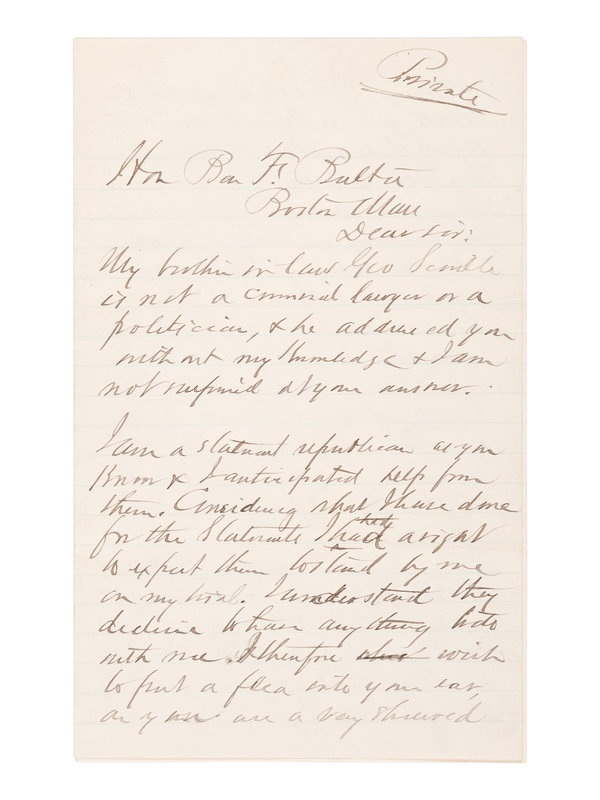 Private
Hon Ben F. Butler
Boston Mass
Dear sir:
My brother in law Geo Scoville
is not a criminal lawyer or a
politician, & he addressed you
without my knowledge & I am
not surprised at your answer.
I am a stalwart republican as you
Know & I anticipated help from
them. Considering what I have done
for the Stalwarts I had a right
to expect them to stand by me
on my trial. I understand they
decline to have anything to do
with me. I therefore wish
to put a flea into your ear,
as you are a very shrewd